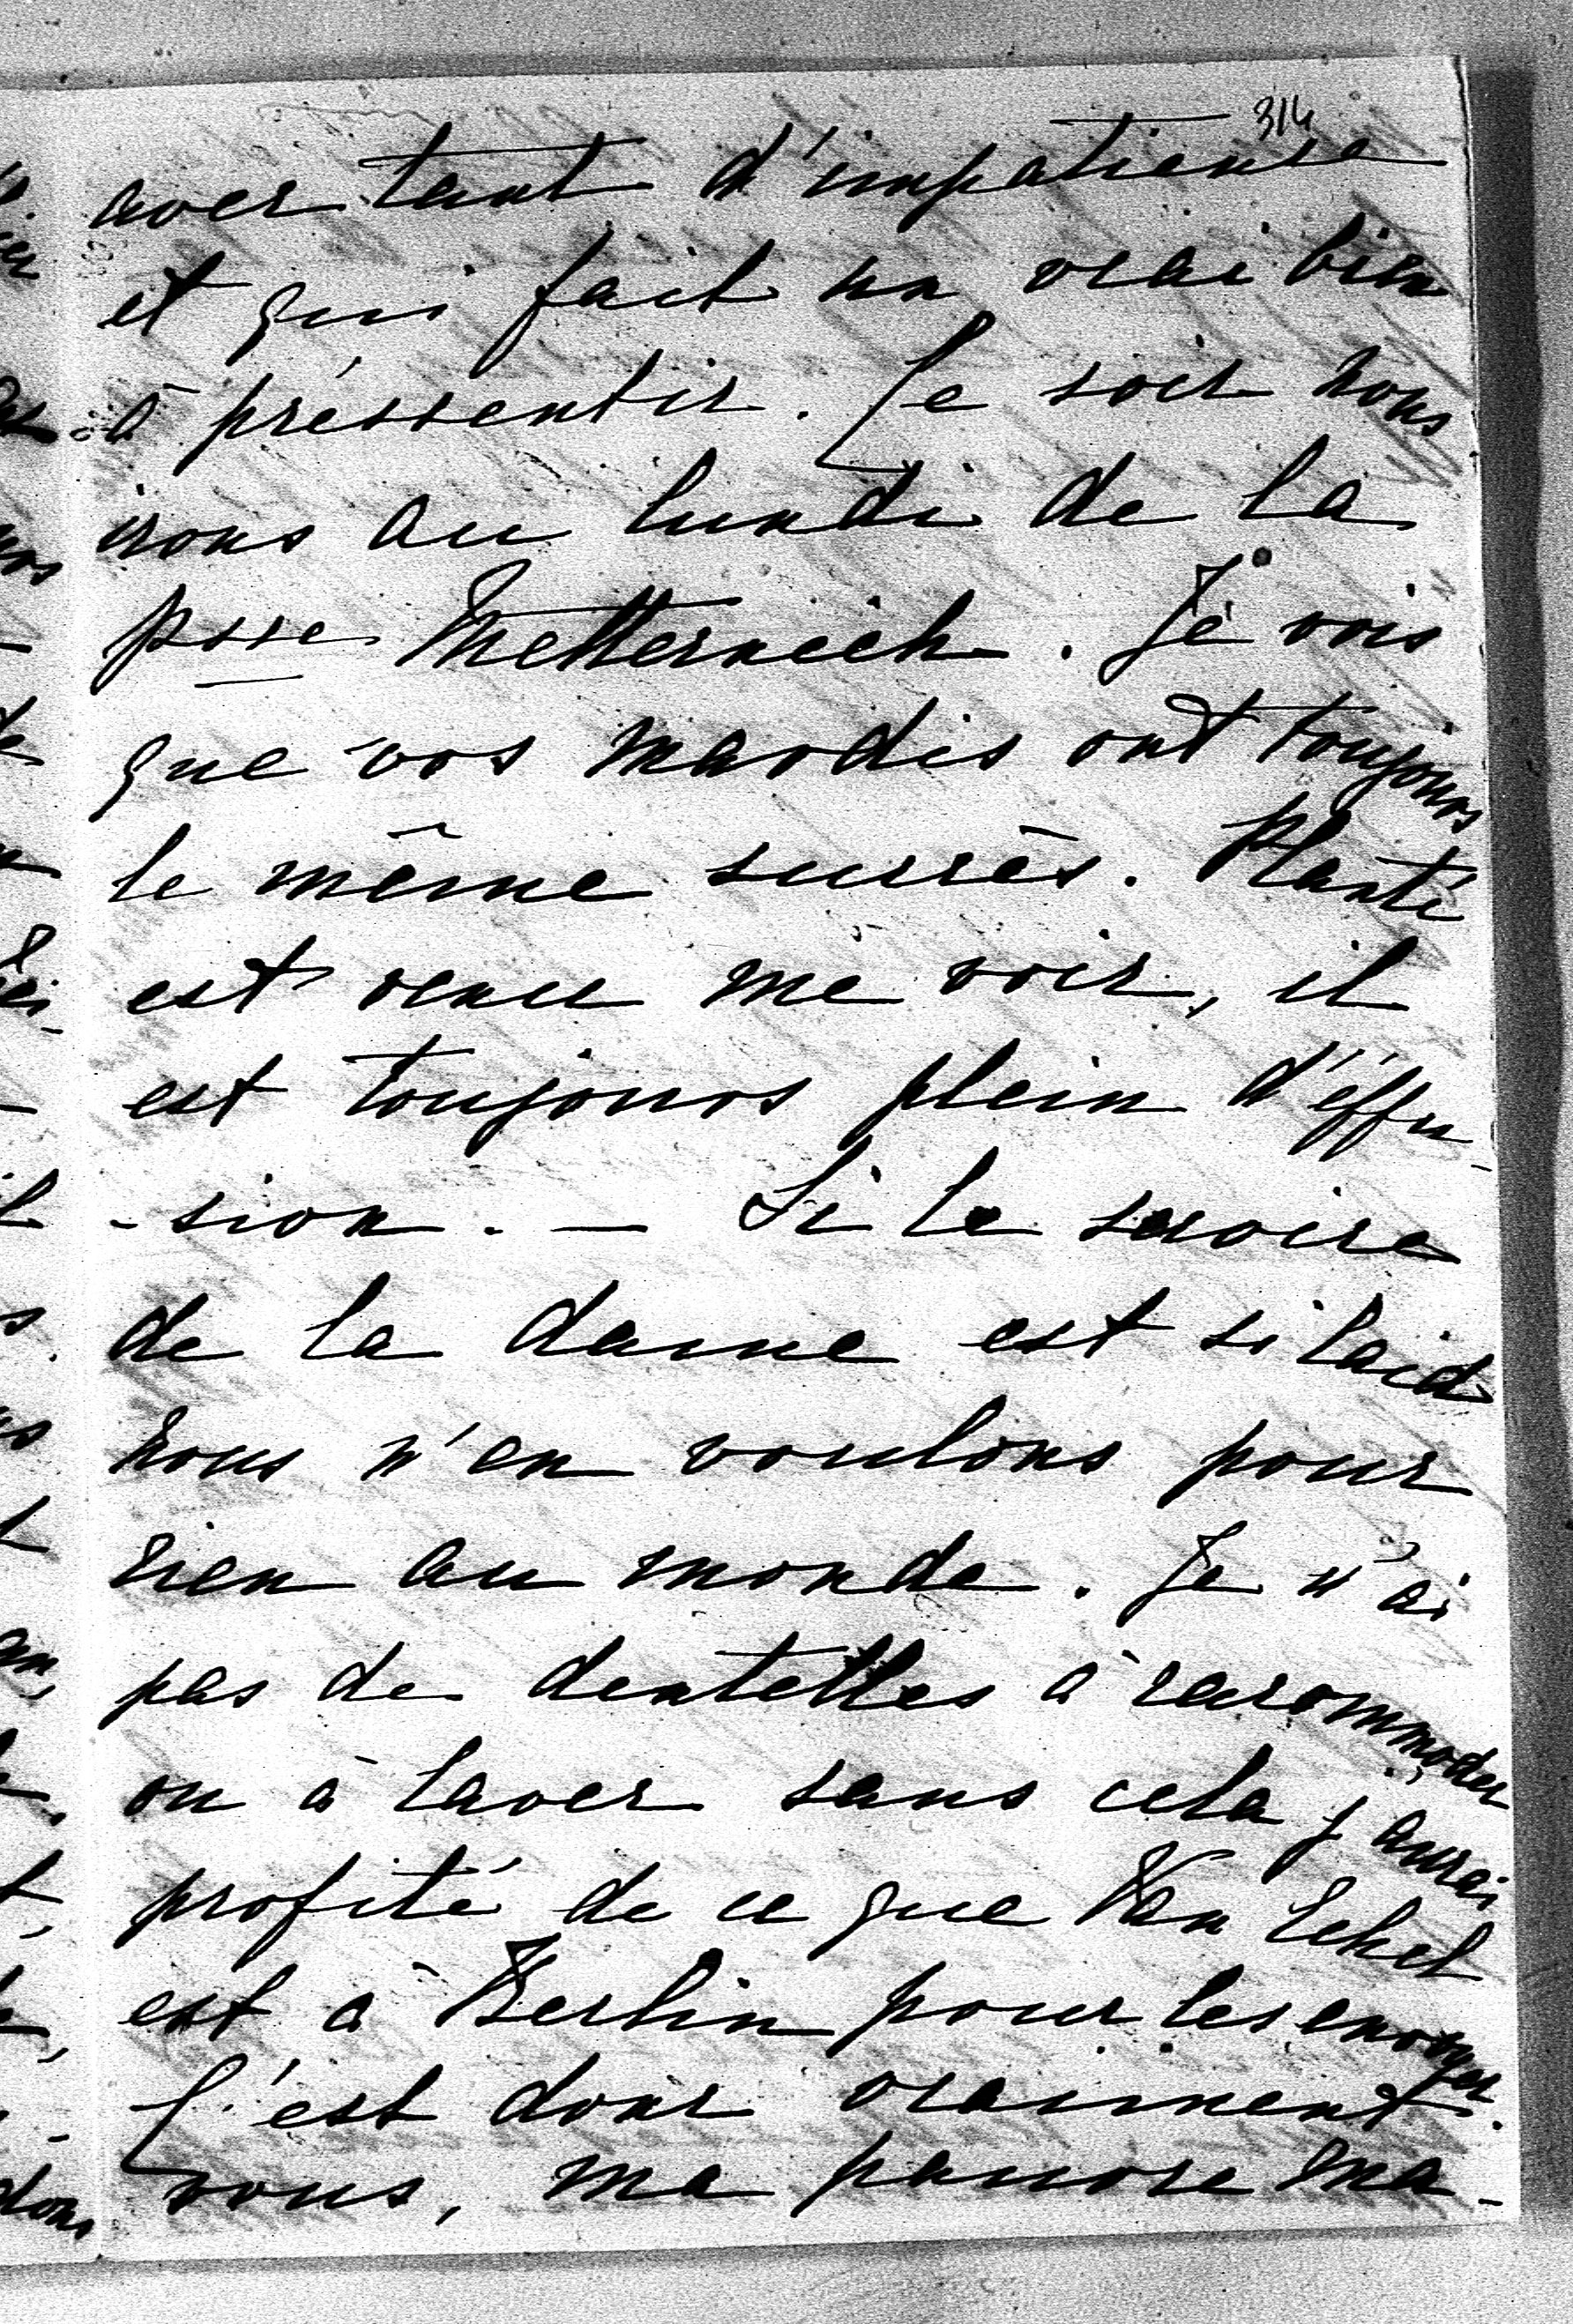 314
avec tant d'impatience
et qui fait un vrai bien
à préssentir. Le soir nous
irons au lundi de la
psse Metternich. Je vois
que vos mardis ont toujours
le même succès. Planté
est venu me voir, il
est toujours plein d'éffu-
-sion. – Si le
de la dame est si laid
nous n'en voulons pour
rien au monde. Je n'ai
pas de dentelles à racommoder
ou à laver sans cela j'aurai
profité de ce que Van
est à Berlin pour les envoyer.
C'est donc vraiment
vous, ma pauvre ma-